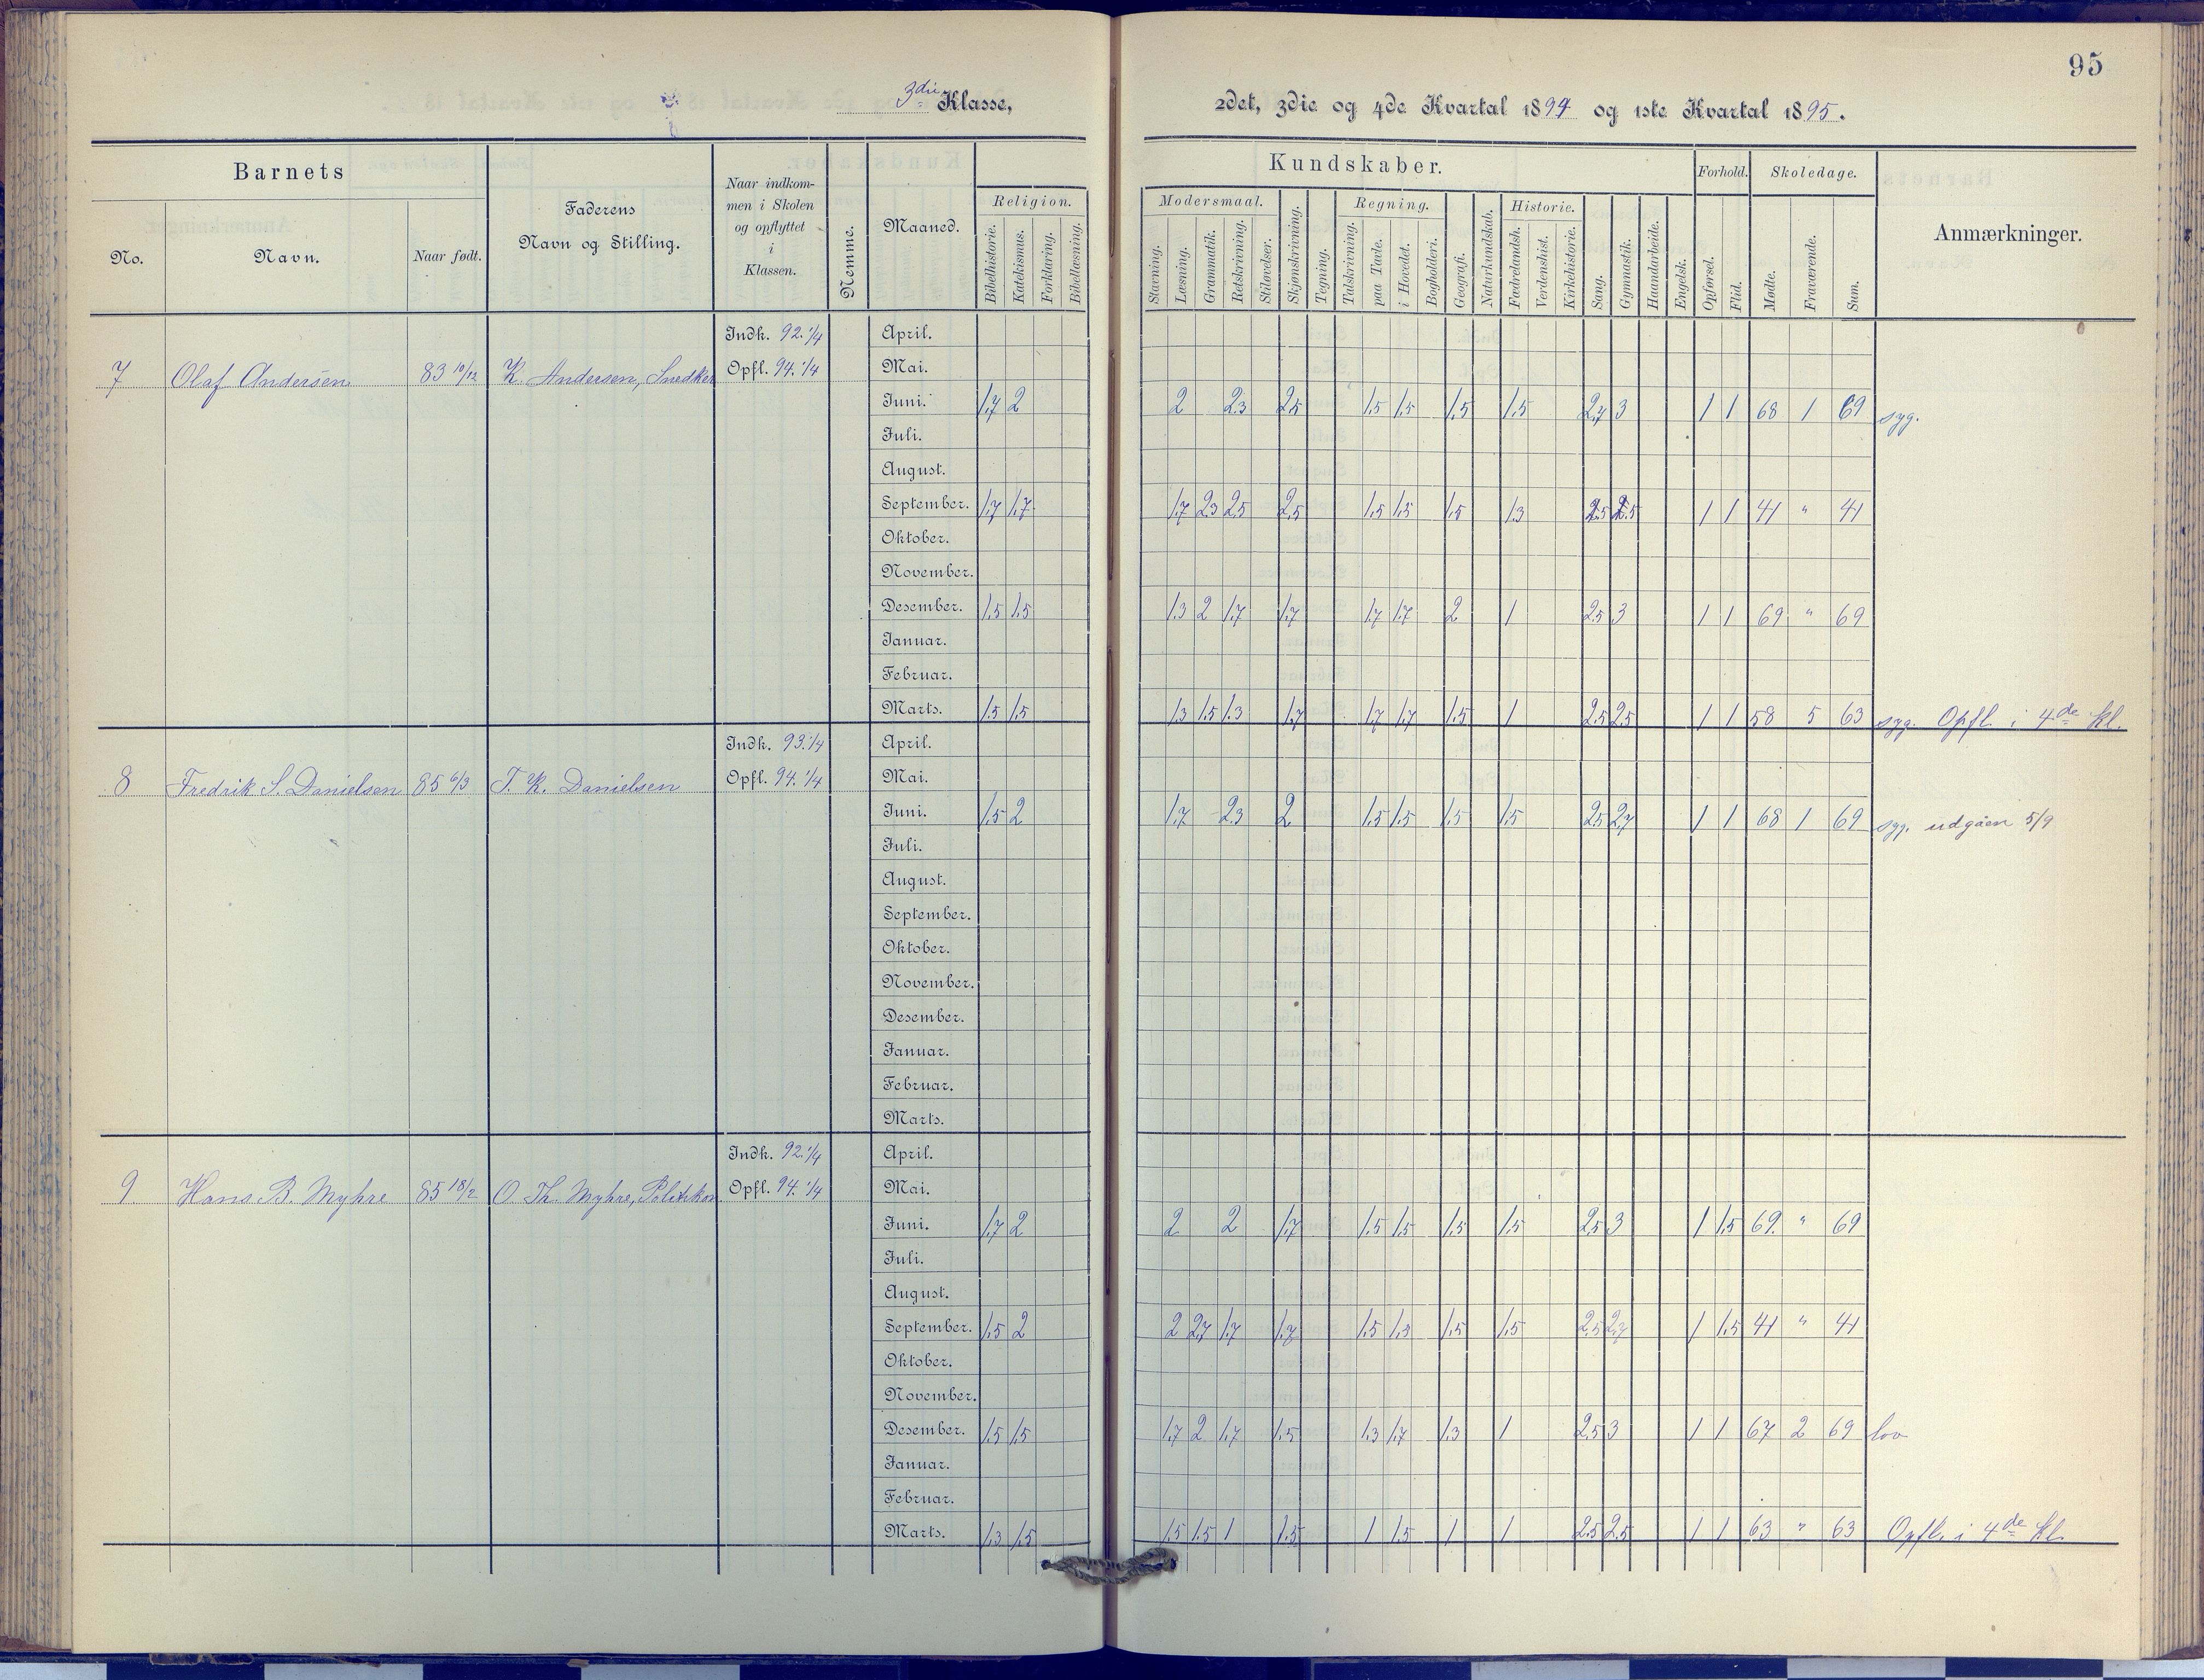 95
3die Klasse, 2det, 3die og 4de Kvartal 1894 og 1ste Kvartal 1895.
Barnets
No. Navn. Naar født.
Faderens
Navn og Stilling.
Naar indkom-
men i Skolen
og opflyttet
i
Klassen.
Nemme.
Maaned.
Kundskaber.
Religion.
Bibelhistorie. Katekismus. Forklaring. Bibellæsning.
Modersmaal.
Stavning. Læsning. Grammatik. Retskrivning. Stiløvelser.
Skjønskrivning. Tegning.
Regning.
Talskrivning. paa Tavle. i Hovedet. Bogholderi.
Geografi. Naturkundskab.
Historie.
Fædrelandsh. Verdenshist. Kirkehistorie.
Sang. Gymnastik. Haandarbeide. Engelsk.
Forhold.
Opførsel. Flid.
Skoledage.
Møde. Fraværende. Sum.
Anmærkninger.
Indk. 92.1/4 April.
7 Olaf Andersen 83 10/12 K. Andersen, Snedker Opfl. 94.1/4 Mai.
Juni. 1.7 2 2 2.3 2.5 1.5 1.5 1.5 1.5 2.7 3 1 1 68 1 69 syg.
Juli.
August.
September. 1.7 1.7 1.7 2.3 2.5 2.5 1.5 1.5 1.5 1.3 2.5 2.5 1 1 41 " 41
Oktober.
November.
Desember. 1.5 1.5 1.3 2 1.7 1.7 1.7 1.7 2 1 2.5 3 1 1 69 " 69
Januar.
Februar.
Marts. 1.5 1.5 1.3 1.5 1.3 1.7 1.7 1.7 1.5 1 2.5 2.5 1 1 58 5 63 syg. Opfl. i 4de Kl.
Indk. 93.1/4 April.
8 Fredrik S. Danielsen 85 6/3 T. K. Danielsen Opfl. 94.1/4 Mai.
Juni. 1.5 2 1.7 2.3 2 1.5 1.5 1.5 1.5 2.5 2.7 1 1 68 1 69 syg. udgåen 5/9
Juli.
August.
September.
Oktober.
November.
Desember.
Januar.
Februar.
Marts.
Indk. 92.1/4 April.
9 Hans B. Myhre 85 18/2 O. Th. Myhre, Politikon Opfl. 94.1/4 Mai.
Juni. 1.7 2 2 2 1.7 1.5 1.5 1.5 1.5 2.5 3 1 1.5 69. " 69
Juli.
August.
September. 1.5 2 2 2.7 1.7 1.7 1.5 1.3 1.5 1.5 2.5 2.7 1 1.5 41 " 41
Oktober.
November.
Desember. 1.5 1.5 1.7 2 1.7 1.5 1.3 1.7 1.3 1 2.5 3 1 1 67 2 69 lov
Januar.
Februar.
Marts. 1.3 1.5 1.5 1.5 1 1.5 1 1.5 1 1 2.5 2.5 1 1 63 " 63 Opfl. i 4de Kl.